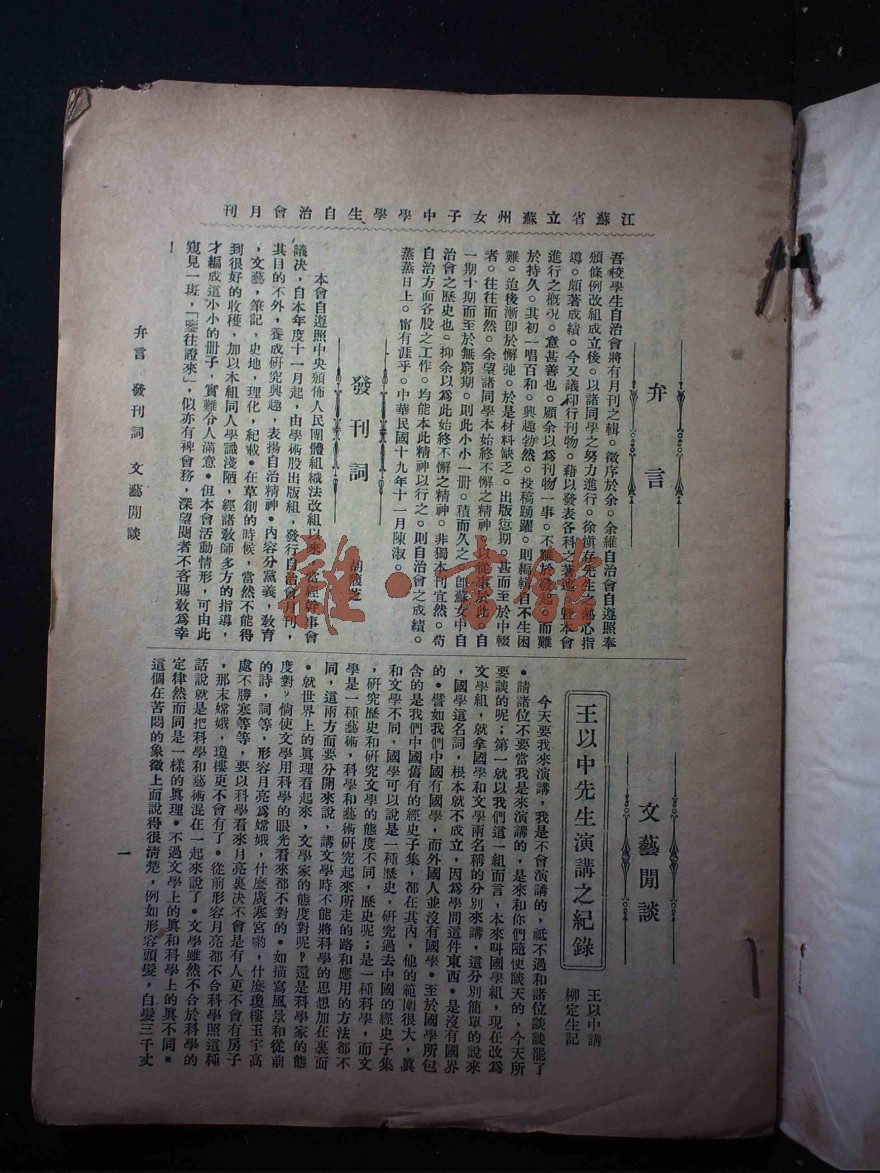 江蘇省立蘇州女子中學學生自治會月刊
弁言
吾校學生自治會將有月刊之輯。徵序於余。余維自治會自遵照奉
頒條例改組成立後。以諸同學之努力進行。徐鎮存先生之熱心指
導。頗著成績。今又議印行刊物。藉以發表各科之著述。暨本會
進行之概況。意甚善也。顧余以爲刊物一事。不難於發起。而難
於持久。其初一唱百和。興趣勃然。投稿踴躍。則編輯自不生困
難。迨後漸卽於懈弛。於是材料缺乏。出版愆期。甚而至於中輟
者。往往而然。余望諸同學本始終不懈之精神。以從事於此。自
一期十期而至於無窮期。則此小小一册。積而久之。卽蘇女中自
治會之歷史也。抑余以爲此始終不懈之精神。非獨本刊宜然。苟
自治方面各股之工作。均能本此精神以行之。則自治會之成績。
蒸蒸日上。甯有涯乎。中華民國十九年十一月陳淑。
發刊詞
胡馥芝
本會自遵照中央頒佈人民團體組織法改組以來，當經幹事會
議決，自本年度十一月起，由學術股出版組，發行自治會月刊，
其目的不外，養成研究興趣，表揚自治精神。內容分黨義，敎育
，文藝，筆記，史地，理化，紀載。在草創的時候，當然不能得
到很好的收穫，加以本組同人學識淺陋，經諸敎師多方的指導，
才編成這小小的册子，實難令人滿意。但本會活動情形，可由此
窺見一斑，「鑒往證來」，似亦有裨會務，深望閱者不吝賜敎爲幸
！
文藝閒談
王以中先生演講之紀錄
王以中講
柳定生記
今天要我來演講，我是不會演講的，祇不過和諸位談談罷了
。請諸位不要當我是來演講的，是來和你們隨便談天的，今天所
要談的呢；第一就以我們這一組而言，本來叫國學組，現在改爲
文學組，就拿國學和文學兩名稱的分別來講，這分別簡單的說來
，國學這名詞，根本就不成立，因爲學問這件東西。是沒有國界
的。譬如我們中國有國學，而外國人並沒有國學。至於國學所包
含的是我們中國舊有的經史子集，都在其內，他的範圍很大，眞
和文學不同，國學可以說是一種歷史，研究過去中國的經史子集
，研究歷史和研究文學的態度不同，歷史呢；是一種科學，而文
學是一種藝術，科學和藝術研究起來所走的路和應用的方法都不
同，這兩方面要分開來說，講文學時不能將科學的思想加在裏面
。就世界上的眞理看起來，文學家的態度對呢？還是科學家的態
度對？倘使文學用科學的眼光看來都不對的。如描寫風景和從前
的詩，詞等，形容月亮爲嫦娥，什麼廣寒宮喲，什麼瓊樓玉宇高
處不勝寒等等，要以科學看來月亮裏決不會是有人更不會有房子
，那末嫦娥，瓊樓更不會有了。從前形容月亮都不合科學照這種
話說就是把科學和藝術混在一起來說了。文學雖然不合於科學的
定律然而同是一樣的眞理。不過文學上的眞和科學上的眞不同。
這個在苦悶的象徵上面說得很淸楚，例如形容頭髮，白髮三千丈
弁言 發刊詞 文藝閒談
一